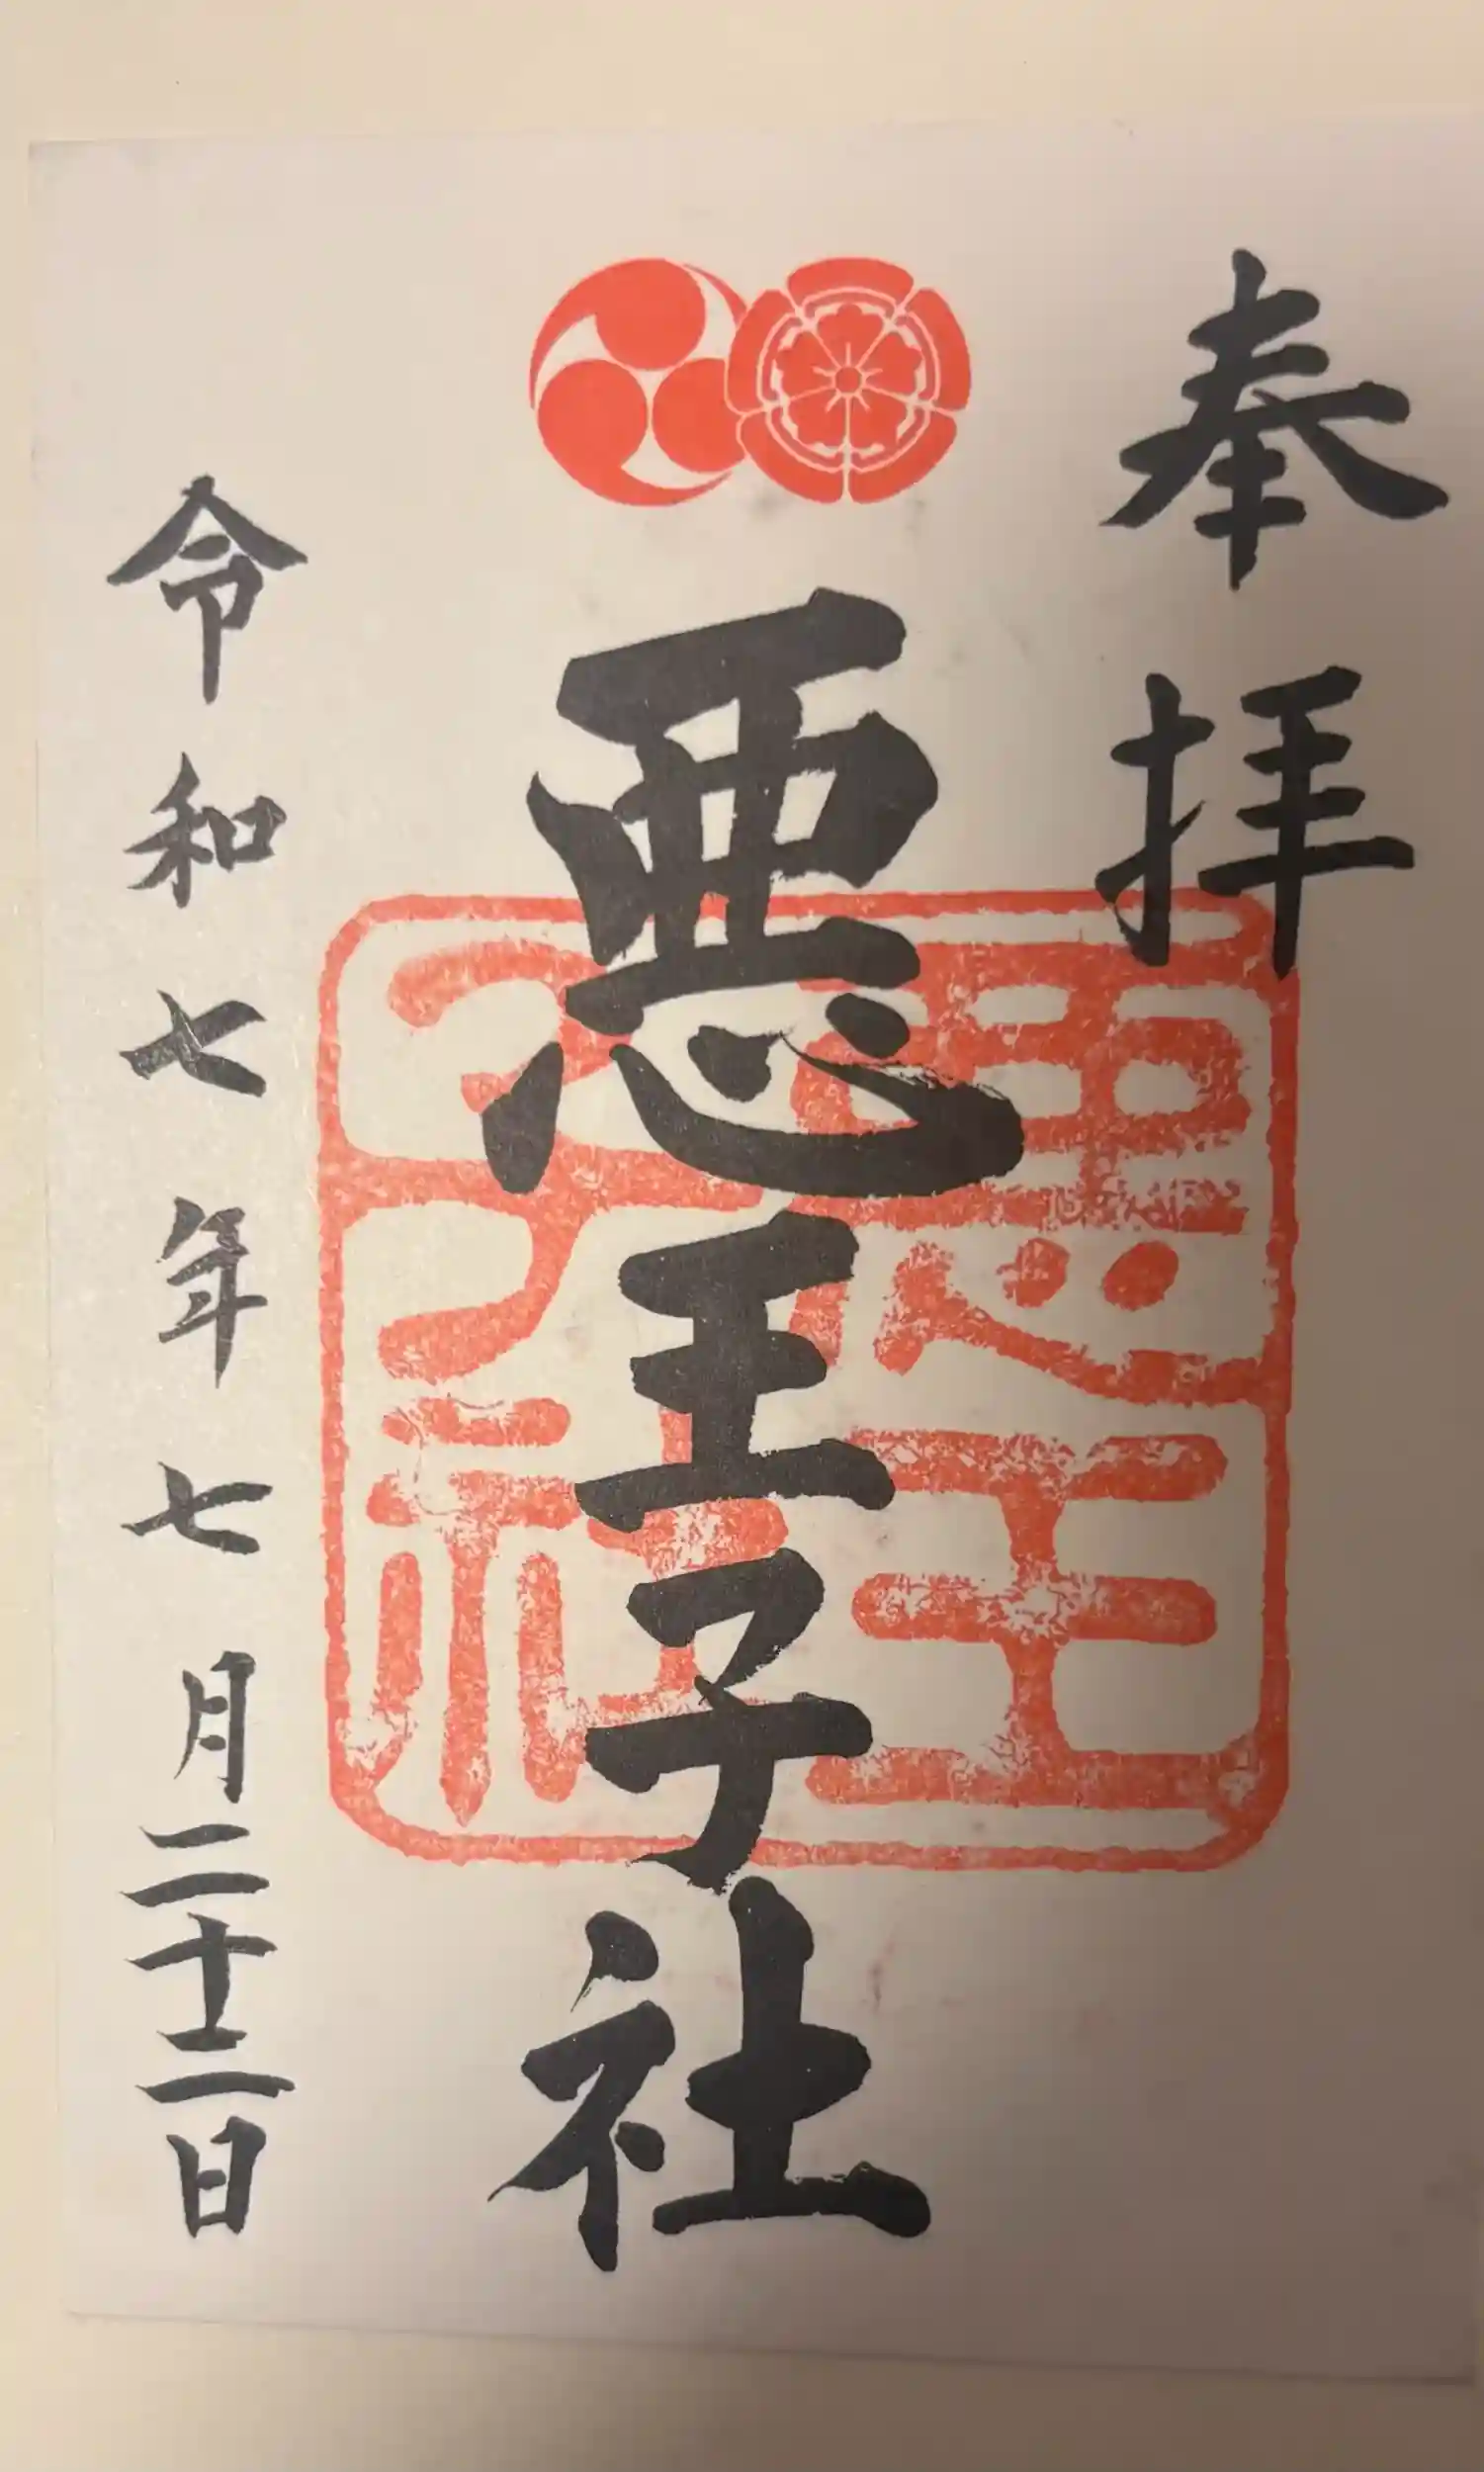 奉拝
悪王子社
悪王子社
令和七年七月二十二日